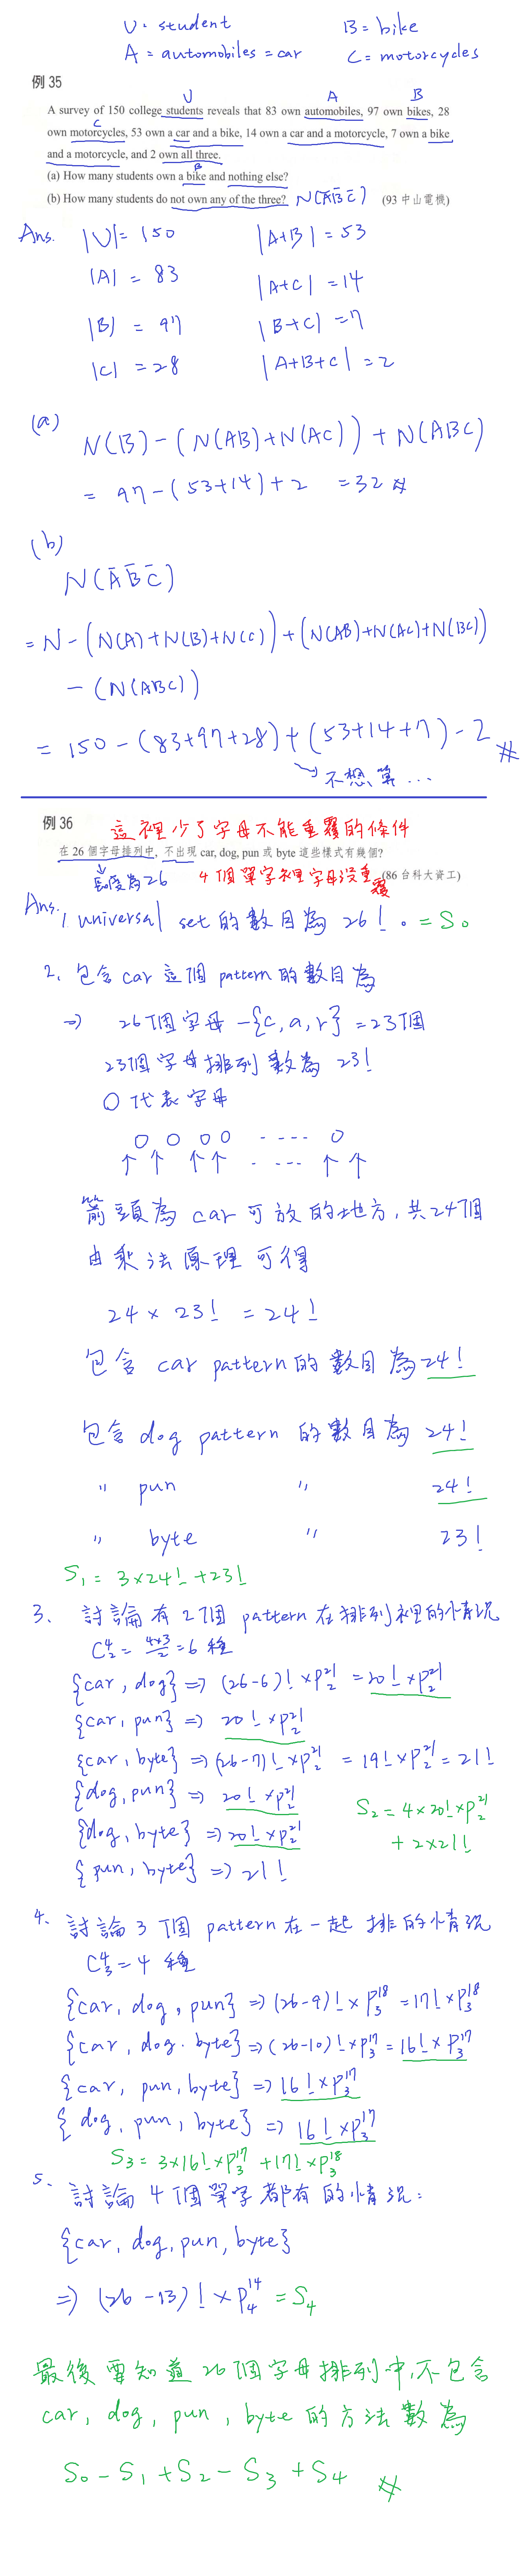 U = student B = bike
A = automobiles = car C = motorcycles
例 35
U A B
A survey of 150 college students reveals that 83 own automobiles, 97 own bikes, 28
C
own motorcycles, 53 own a car and a bike, 14 own a car and a motorcycle, 7 own a bike
and a motorcycle, and 2 own all three.
B
(a) How many students own a bike and nothing else?
(b) How many students do not own any of the three? N(ĀB̄C̄) (93 中山電機)
Ans. |U| = 150 |A+B| = 53
|A| = 83 |A+C| = 14
|B| = 97 |B+C| = 7
|C| = 28 |A+B+C| = 2
(a)
N(B) - (N(AB)+N(AC)) + N(ABC)
= 97 - (53+14) + 2 = 32 #
(b)
N(ĀB̄C̄)
= N - (N(A)+N(B)+N(C)) + (N(AB)+N(AC)+N(BC))
- (N(ABC))
= 150 - (83+97+28) + (53+14+7) - 2 #
→ 不想算...
例 36 這裡少了字母不能重覆的條件
在 26 個字母排列中, 不出現 car, dog, pun 或 byte 這些樣式有幾個?
↓ 長度為26 4個單字裡字母沒重覆 (86 台科大資工)
Ans. 1. universal set 的數目為 26! 。 = S₀
2. 包含 car 這個 pattern 的數目為
⇒ 26個字母 - {c, a, r} = 23個
23個字母排列數為 23!
O 代表字母
O O O O ---- O
↑ ↑ ↑ ↑ ---- ↑ ↑
箭頭為 car 可放的地方, 共24個
由乘法原理可得
24 × 23! = 24!
包含 car pattern 的數目為 24!
包含 dog pattern 的數目為 24!
〃 pun 〃 24!
〃 byte 〃 23!
S₁ = 3×24! + 23!
3. 討論有2個 pattern 在排列裡的情況
C⁴₂ = 4×3/2 = 6 種
{car, dog} ⇒ (26-6)! × P²¹₂ = 20! × P²¹₂
{car, pun} ⇒ 20! × P²¹₂
{car, byte} ⇒ (26-7)! × P²¹₂ = 19! × P²¹₂ = 21!
{dog, pun} ⇒ 20! × P²¹₂
{dog, byte} ⇒ 20! × P²¹₂
S₂ = 4×20! × P²¹₂
+ 2×21!
{pun, byte} ⇒ 21!
4. 討論3個 pattern 在一起排的情況
C⁴₃ = 4 種
{car, dog, pun} ⇒ (26-9)! × P¹⁸₃ = 17! × P¹⁸₃
{car, dog, byte} ⇒ (26-10)! × P¹⁷₃ = 16! × P¹⁷₃
{car, pun, byte} ⇒ 16! × P¹⁷₃
{dog, pun, byte} ⇒ 16! × P¹⁷₃
S₃ = 3×16! × P¹⁷₃ + 17! × P¹⁸₃
5. 討論4個單字都有的情況:
{car, dog, pun, byte}
⇒ (26-13)! × P¹⁴₄ = S₄
最後要知道26個字母排列中, 不包含
car, dog, pun, byte 的方法數為
S₀ - S₁ + S₂ - S₃ + S₄ #